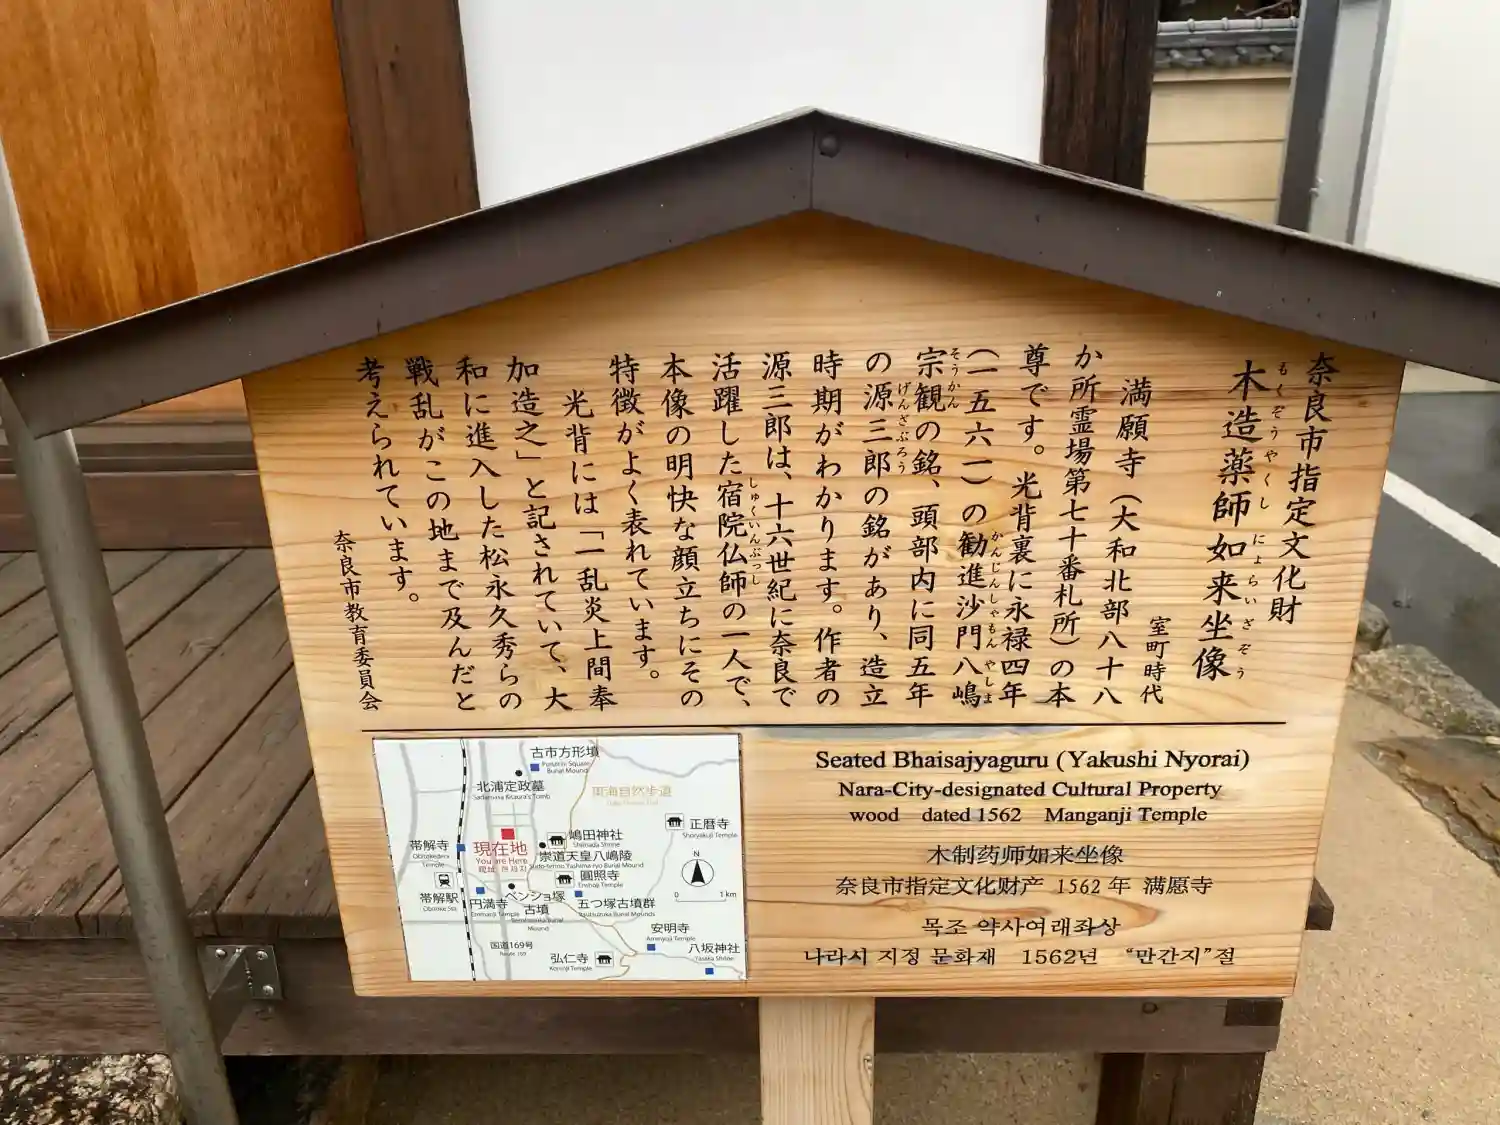 奈良市指定文化財
木造薬師如来坐像
もくぞうやくしにょらいざぞう
室町時代
満願寺（大和北部八十八
か所霊場第七十番札所）の本
尊です。光背裏に永禄四年
（一五六一）の勧進沙門八嶋
かんじんしゃもんやしま
宗観の銘、頭部内に同五年
そうかん
の源三郎の銘があり、造立
げんざぶろう
時期がわかります。作者の
源三郎は、十六世紀に奈良で
活躍した宿院仏師の一人で、
しゅくいんぶっし
本像の明快な顔立ちにその
特徴がよく表れています。
光背には「一乱炎上間奉
加造之」と記されていて、大
和に進入した松永久秀らの
戦乱がこの地まで及んだと
考えられています。
奈良市教育委員会
古市方形墳
Furuichi Square
Burial Mound
北浦定政墓
Sadamasa Kitaura's Tomb
東海自然歩道
嶋田神社
Shimada Shrine
正暦寺
Shoryakuji Temple
帯解寺
Obitokedera
Temple
現在地
You are Here
现址 현위치
崇道天皇八嶋陵
Sudo-tenno Yashima-ryo Burial Mound
圓照寺
Enshoji Temple
N
0 1 km
帯解駅
Obitoke Sta.
円満寺
Enmanji Temple
ベンショ塚
古墳
Benshozuka Burial
Mound
五つ塚古墳群
Itsutsuzuka Burial Mounds
安明寺
Anmyoji Temple
国道169号
Route 169
弘仁寺
Koninji Temple
八坂神社
Yasaka Shrine
Seated Bhaisajyaguru (Yakushi Nyorai)
Nara-City-designated Cultural Property
wood dated 1562 Manganji Temple
木制药师如来坐像
奈良市指定文化财产 1562 年 满愿寺
목조 약사여래좌상
나라시 지정 문화재 1562년 “만간지”절